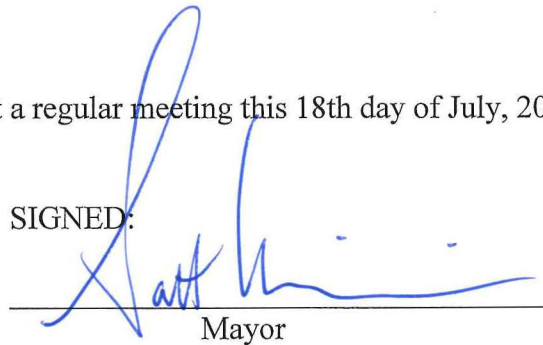 t a regular meeting this 18th day of July, 20
SIGNED:
Mayor